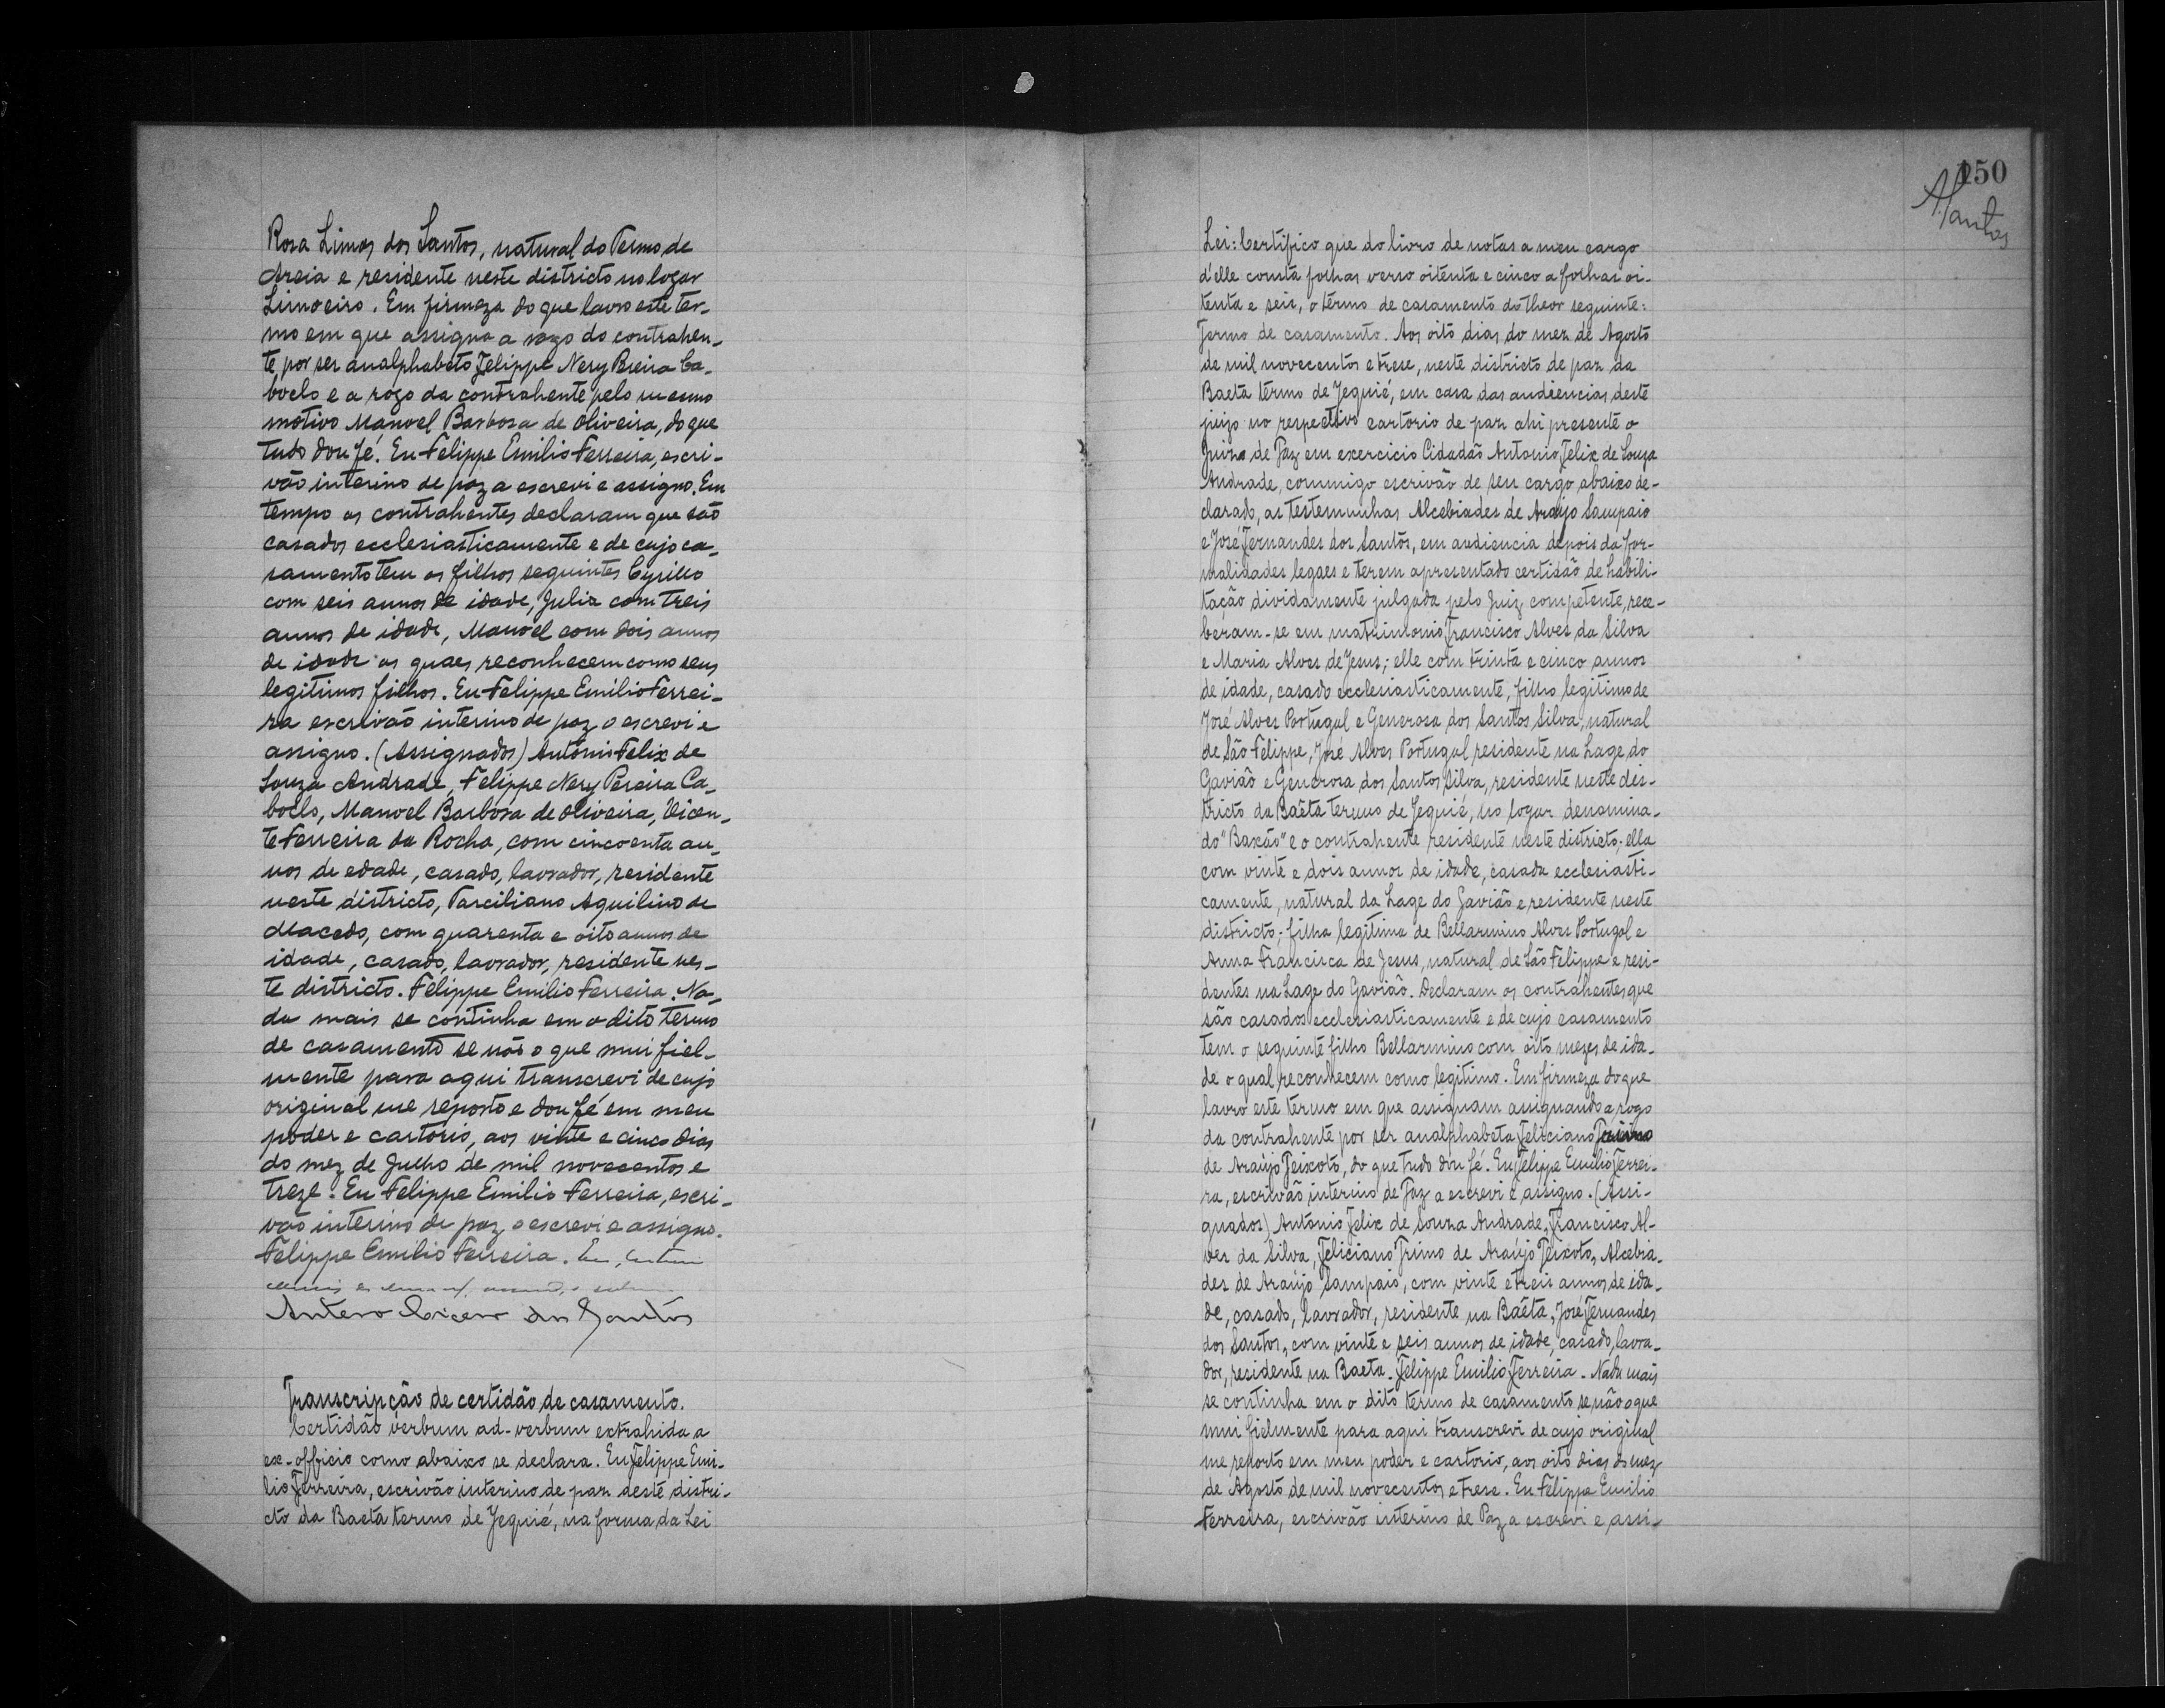 Rosa Limos dos Santos, natural do Termo de
Areia e residente neste districto no logar
Limoeiro. Em firmeza do que lavro este ter-
mo em que assigna a rogo do contrahen-
te por ser analphabeto Felippe Nery Pereira Ca-
boclo e a rogo da contrahente pelo mesmo
motivo Manoel Barbosa de Oliveira, do que
tudo dou fé. Eu Felippe Emilio Ferreira, escri-
vão interino de paz a escrevi e assigno. Em
tempo os contrahentes declaram que são
casados ecclesiasticamente e de cujo ca-
samento tem os filhos seguintes Cyrillo
com seis annos de idade, Julia com treis
annos de idade, Manoel com dois annos
de idade os quaes reconhecem como seus
legitimos filhos. Eu Felippe Emilio Ferrei-
ra escrivão interino de paz o escrevi e
assigno. (Assignados) Antonio Felix de
Souza Andrade, Felippe Nery Pereira Ca-
boclo, Manoel Barbosa de Oliveira, Vicen-
te Ferreira da Rocha, com cincoenta an-
nos de edade, casado, lavrador, residente
neste districto, Tarciliano Aquilino de
Macedo, com quarenta e oito annos de
idade, casado, lavrador, residente nes-
te districto. Felippe Emilio Ferreira. Na-
da mais se continha em o dito termo
de casamento se não o que mui fiel-
mente para aqui transcrevi de cujo
original me reporto e dou fé em meu
poder e cartorio, aos vinte e cinco dias
do mez de Julho de mil novecentos e
treze. Eu Felippe Emilio Ferreira, escri-
vão interino de paz, o escrevi e assigno.
Felippe Emilio Ferreira. Eu,
Antero Cicero dos Santos
Transcripção de certidão de casamento.
Certidão verbum ad-verbum extrahida a
ex-officio como abaixo se declara. Eu Felippe Emi-
lio Ferreira, escrivão interino de paz deste distri-
cto da Baeta termo de Jequié, na forma da Lei
150
ASantos
Lei: Certifico que do livro de notas a meu cargo
d'elle consta folhas verso oitenta e cinco a folhas oi-
tenta e seis, o termo de casamento do theor seguinte:
Termo de casamento. Aos oito dias do mez de Agosto
de mil novecentos e trese, neste districto de paz da
Baeta termo de Jequié, em casa das audiencias deste
juizo no respectivo cartorio de paz ahi presente o
Juiz de Paz em exercicio Cidadão Antonio Felix de Souza
Andrade, commigo escrivão de seu cargo abaixo de-
clarado, as testemunhas Alcebiades de Araujo Sampaio
e José Fernandes dos Santos, em audiencia depois da for-
malidades legaes e terem apresentado certidão de habili-
tação dividamente julgada pelo Juiz competente, rece-
beram-se em matrimonio Francisco Alves da Silva
e Maria Alves de Jesus; elle com trinta e cinco annos
de idade, casado ecclesiasticamente, filho legitimo de
José Alves Portugal e Generosa dos Santos Silva, natural
de São Felippe, José Alves Portugal residente na Lage do
Gavião e Generosa dos Santos Silva, residente neste dis-
tricto da Baêta termo de Jequié, no logar denomina-
do "Baxão" e o contrahente residente neste districto; ella
com vinte e dois annos de idade, casada ecclesiasti-
camente, natural da Lage do Gavião e residente neste
districto; filha legitima de Bellarmino Alves Portugal e
Anna Francisca de Jesus, natural de São Felippe e resi-
dentes na Lage do Gavião. Declaram os contrahentes que
são casados ecclesiasticamente e de cujo casamento
tem o seguinte filho Bellarmino com oito mezes de ida-
de o qual reconhecem como legitimo. Em firmeza do que
lavro este termo em que assignam assignando a rogo
da contrahente por ser analphabeta Feliciano
de Araujo Peixoto, do que tudo dou fé. Eu Felippe Emilio Ferrei-
ra, escrivão interino de Paz a escrevi e assigno. (Assi-
gnados) Antonio Felix de Souza Andrade, Francisco Al-
ves da Silva, Feliciano Primo de Araujo Peixoto, Alcebia-
des de Araujo Sampaio, com vinte e treis annos de ida-
de, casado, lavrador, residente na Baêta, José Fernandes
dos Santos, com vinte e seis annos de idade, casado, lavra-
dor, residente na Baeta. Felippe Emilio Ferreira. Nada mais
se continha em o dito termo de casamento se não o que
mui fielmente para aqui transcrevi de cujo original
me reporto em meu poder e cartorio, aos oito dias do mez
de Agosto de mil novecentos e trese. Eu Felippe Emilio
Ferreira, escrivão interino de Paz a escrevi e assi-